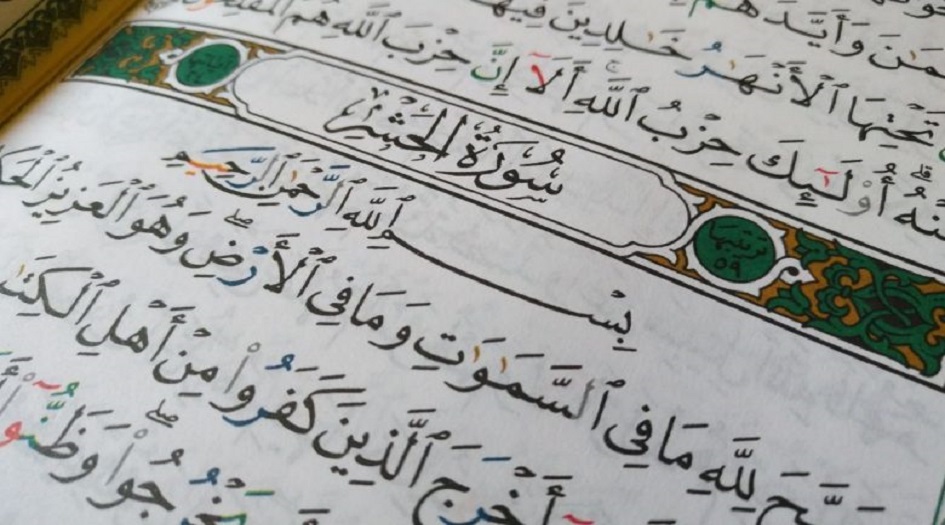 وَأَيَّدَهُم
تَحْتِهَا ٱلْأَنْهَٰرُ خَٰلِدِينَ فِيهَا
أُو۟لَٰٓئِكَ حِزْبُ ٱللَّهِ أَلَآ إِنَّ حِزْبَ ٱللَّهِ هُمُ
ترتيبها ٥٩
سُورَةُ الحَشْرِ
بِسْمِ ٱللَّهِ ٱلرَّحْمَٰنِ ٱلرَّحِيمِ
لِلَّهِ مَا فِى ٱلسَّمَٰوَٰتِ وَمَا فِى ٱلْأَرْضِ ۖ وَهُوَ ٱلْعَزِيزُ
أَخْرَجَ ٱلَّذِينَ كَفَرُوا۟ مِنْ أَهْلِ ٱلْكِتَٰ
يَخْرُجُوا۟ ۖ وَظَنُّوٓا۟